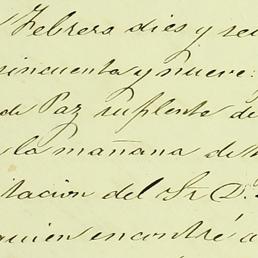 Febrero dies y sei
cincuenta y nueve:
de Paz suplente de
la mañana de
itacion del Sr D.
quien encontré a